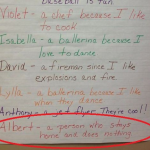 baseball is fun
Violet - a chef because I like
to cook.
Isabella - a ballerina because I
love to dance
David - a fireman since I like
explosions and fire
Lylla - a ballerina because I like
when they dance
Anthony - a jet flyer. They're cool!
Albert - a person who stays
home and does nothing